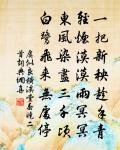 一把新秧趁手青
輕煙漠漠雨冥冥
東風染盡三千頃
白鷺飛來無處停
虞似良橫溪堂春曉二
首詞典網